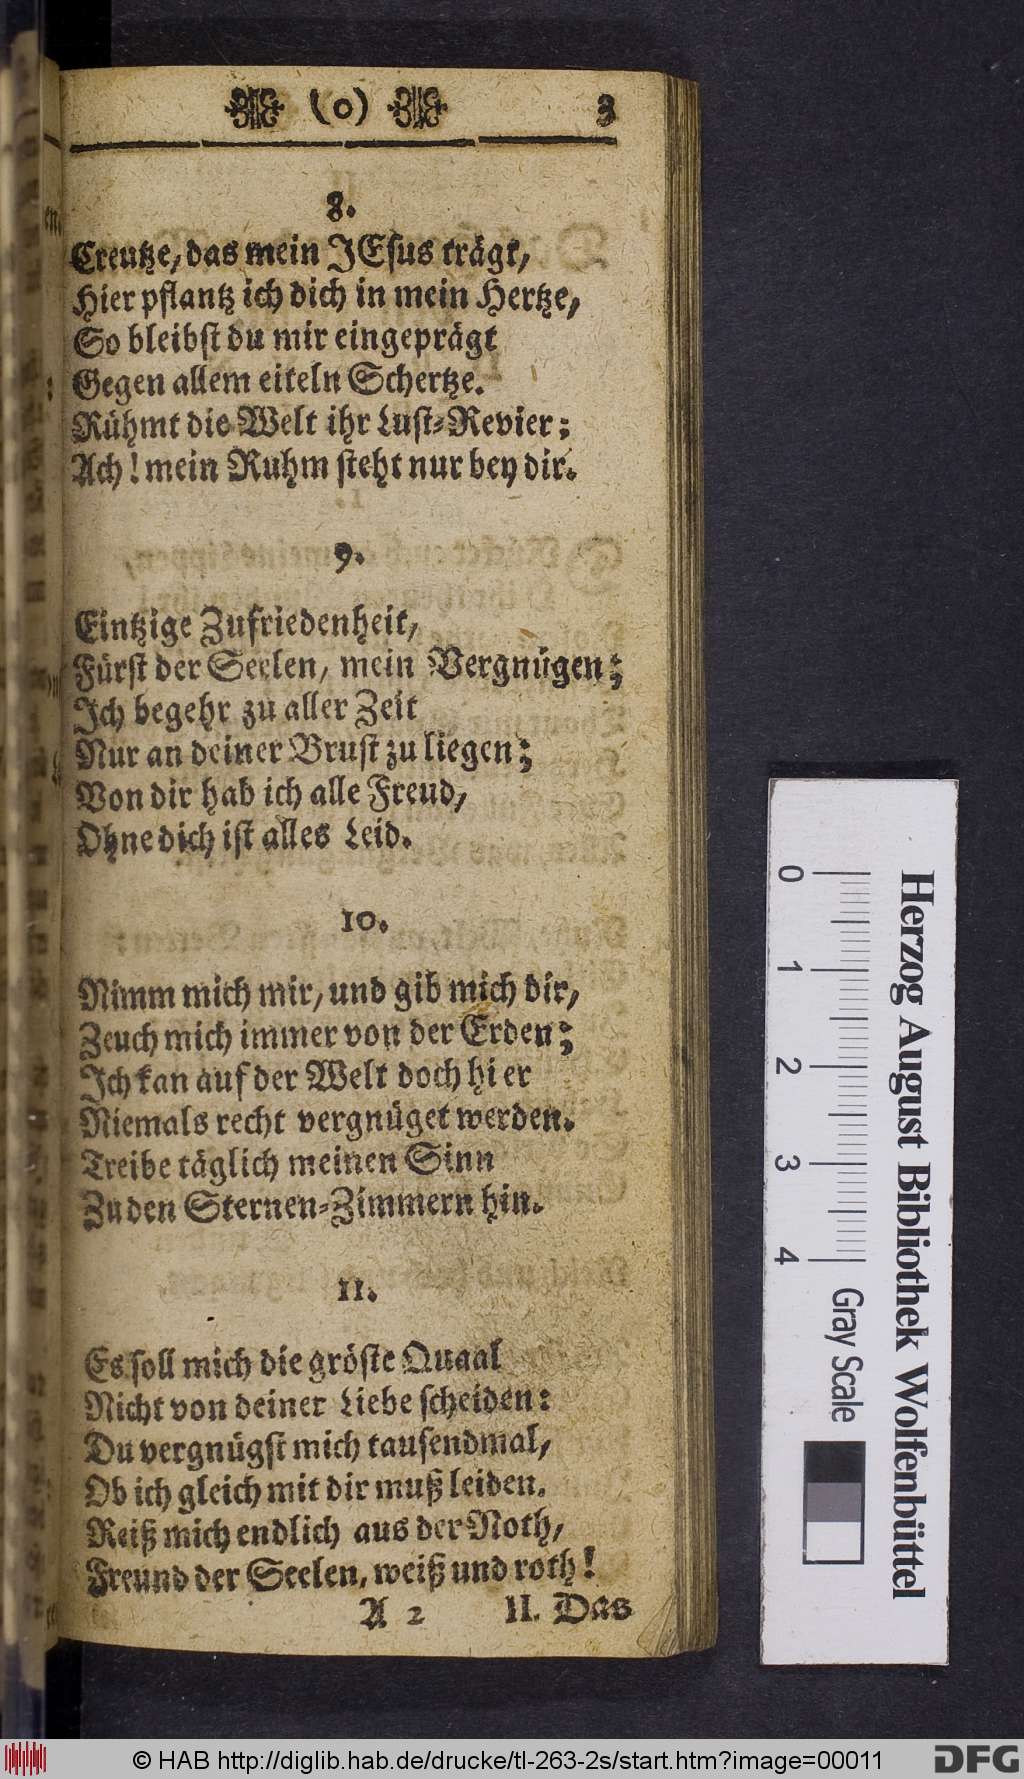 (0) 3
8.
Creutze, das mein JEsus trägt,
Hier pflantz ich dich in mein Hertze,
So bleibst du mir eingeprägt
Gegen allem eiteln Schertze.
Rühmt die Welt ihr Lust-Revier;
Ach! mein Ruhm steht nur bey dir.
9.
Eintzige Zufriedenheit,
Fürst der Seelen, mein Vergnügen;
Ich begehr zu aller Zeit
Nur an deiner Brust zu liegen;
Von dir hab ich alle Freud,
Ohne dich ist alles Leid.
10.
Nimm mich mir, und gib mich dir,
Zeuch mich immer von der Erden;
Ich kan auf der Welt doch hier
Niemals recht vergnüget werden.
Treibe täglich meinen Sinn
Zu den Sternen-Zimmern hin.
11.
Es soll mich die gröste Quaal
Nicht von deiner Liebe scheiden:
Du vergnügst mich tausendmal,
Ob ich gleich mit dir muß leiden.
Reiß mich endlich aus der Noth,
Freund der Seelen, weiß und roth!
A 2 II. Das
0 1 2 3 4 Gray Scale
Herzog August Bibliothek Wolfenbüttel
© HAB http://diglib.hab.de/drucke/tl-263-2s/start.htm?image=00011 DFG